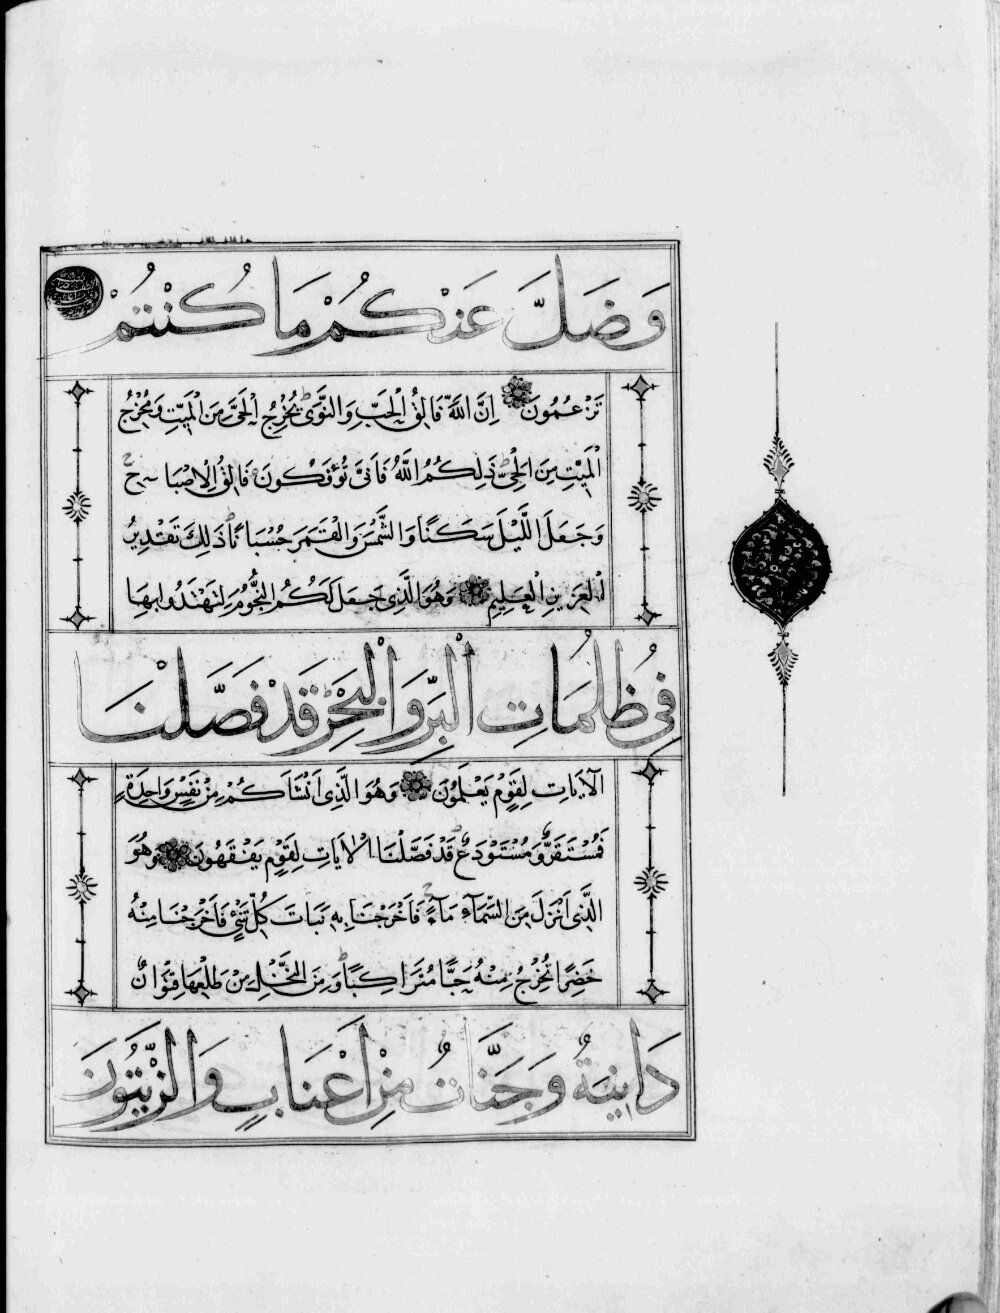 وَضَلَّ عَنْكُمْ مَا كُنْتُمْ
تَزْعُمُونَ اِنَّ اللّٰهَ فَالِقُ الْحَبِّ وَالنَّوٰى يُخْرِجُ الْحَىَّ مِنَ الْمَيِّتِ وَمُخْرِجُ
الْمَيِّتِ مِنَ الْحَىِّ ذٰلِكُمُ اللّٰهُ فَاَنّٰى تُؤْفَكُونَ فَالِقُ الْاِصْبَاحِ
وَجَعَلَ الَّيْلَ سَكَنًا وَالشَّمْسَ وَالْقَمَرَ حُسْبَانًا ذٰلِكَ تَقْدِيرُ
الْعَزِيزِ الْعَلِيمِ وَهُوَ الَّذِى جَعَلَ لَكُمُ النُّجُومَ لِتَهْتَدُوا بِهَا
فِى ظُلُمَاتِ الْبَرِّ وَالْبَحْرِ قَدْ فَصَّلْنَا
الْاٰيَاتِ لِقَوْمٍ يَعْلَمُونَ وَهُوَ الَّذِى اَنْشَاَكُمْ مِنْ نَفْسٍ وَاحِدَةٍ
فَمُسْتَقَرٌّ وَمُسْتَوْدَعٌ قَدْ فَصَّلْنَا الْاٰيَاتِ لِقَوْمٍ يَفْقَهُونَ وَهُوَ
الَّذِى اَنْزَلَ مِنَ السَّمَآءِ مَآءً فَاَخْرَجْنَا بِهِ نَبَاتَ كُلِّ شَىْءٍ فَاَخْرَجْنَا مِنْهُ
خَضِرًا نُخْرِجُ مِنْهُ حَبًّا مُتَرَاكِبًا وَمِنَ النَّخْلِ مِنْ طَلْعِهَا قِنْوَانٌ
دَانِيَةٌ وَجَنَّاتٌ مِنْ اَعْنَابٍ وَالزَّيْتُونَ